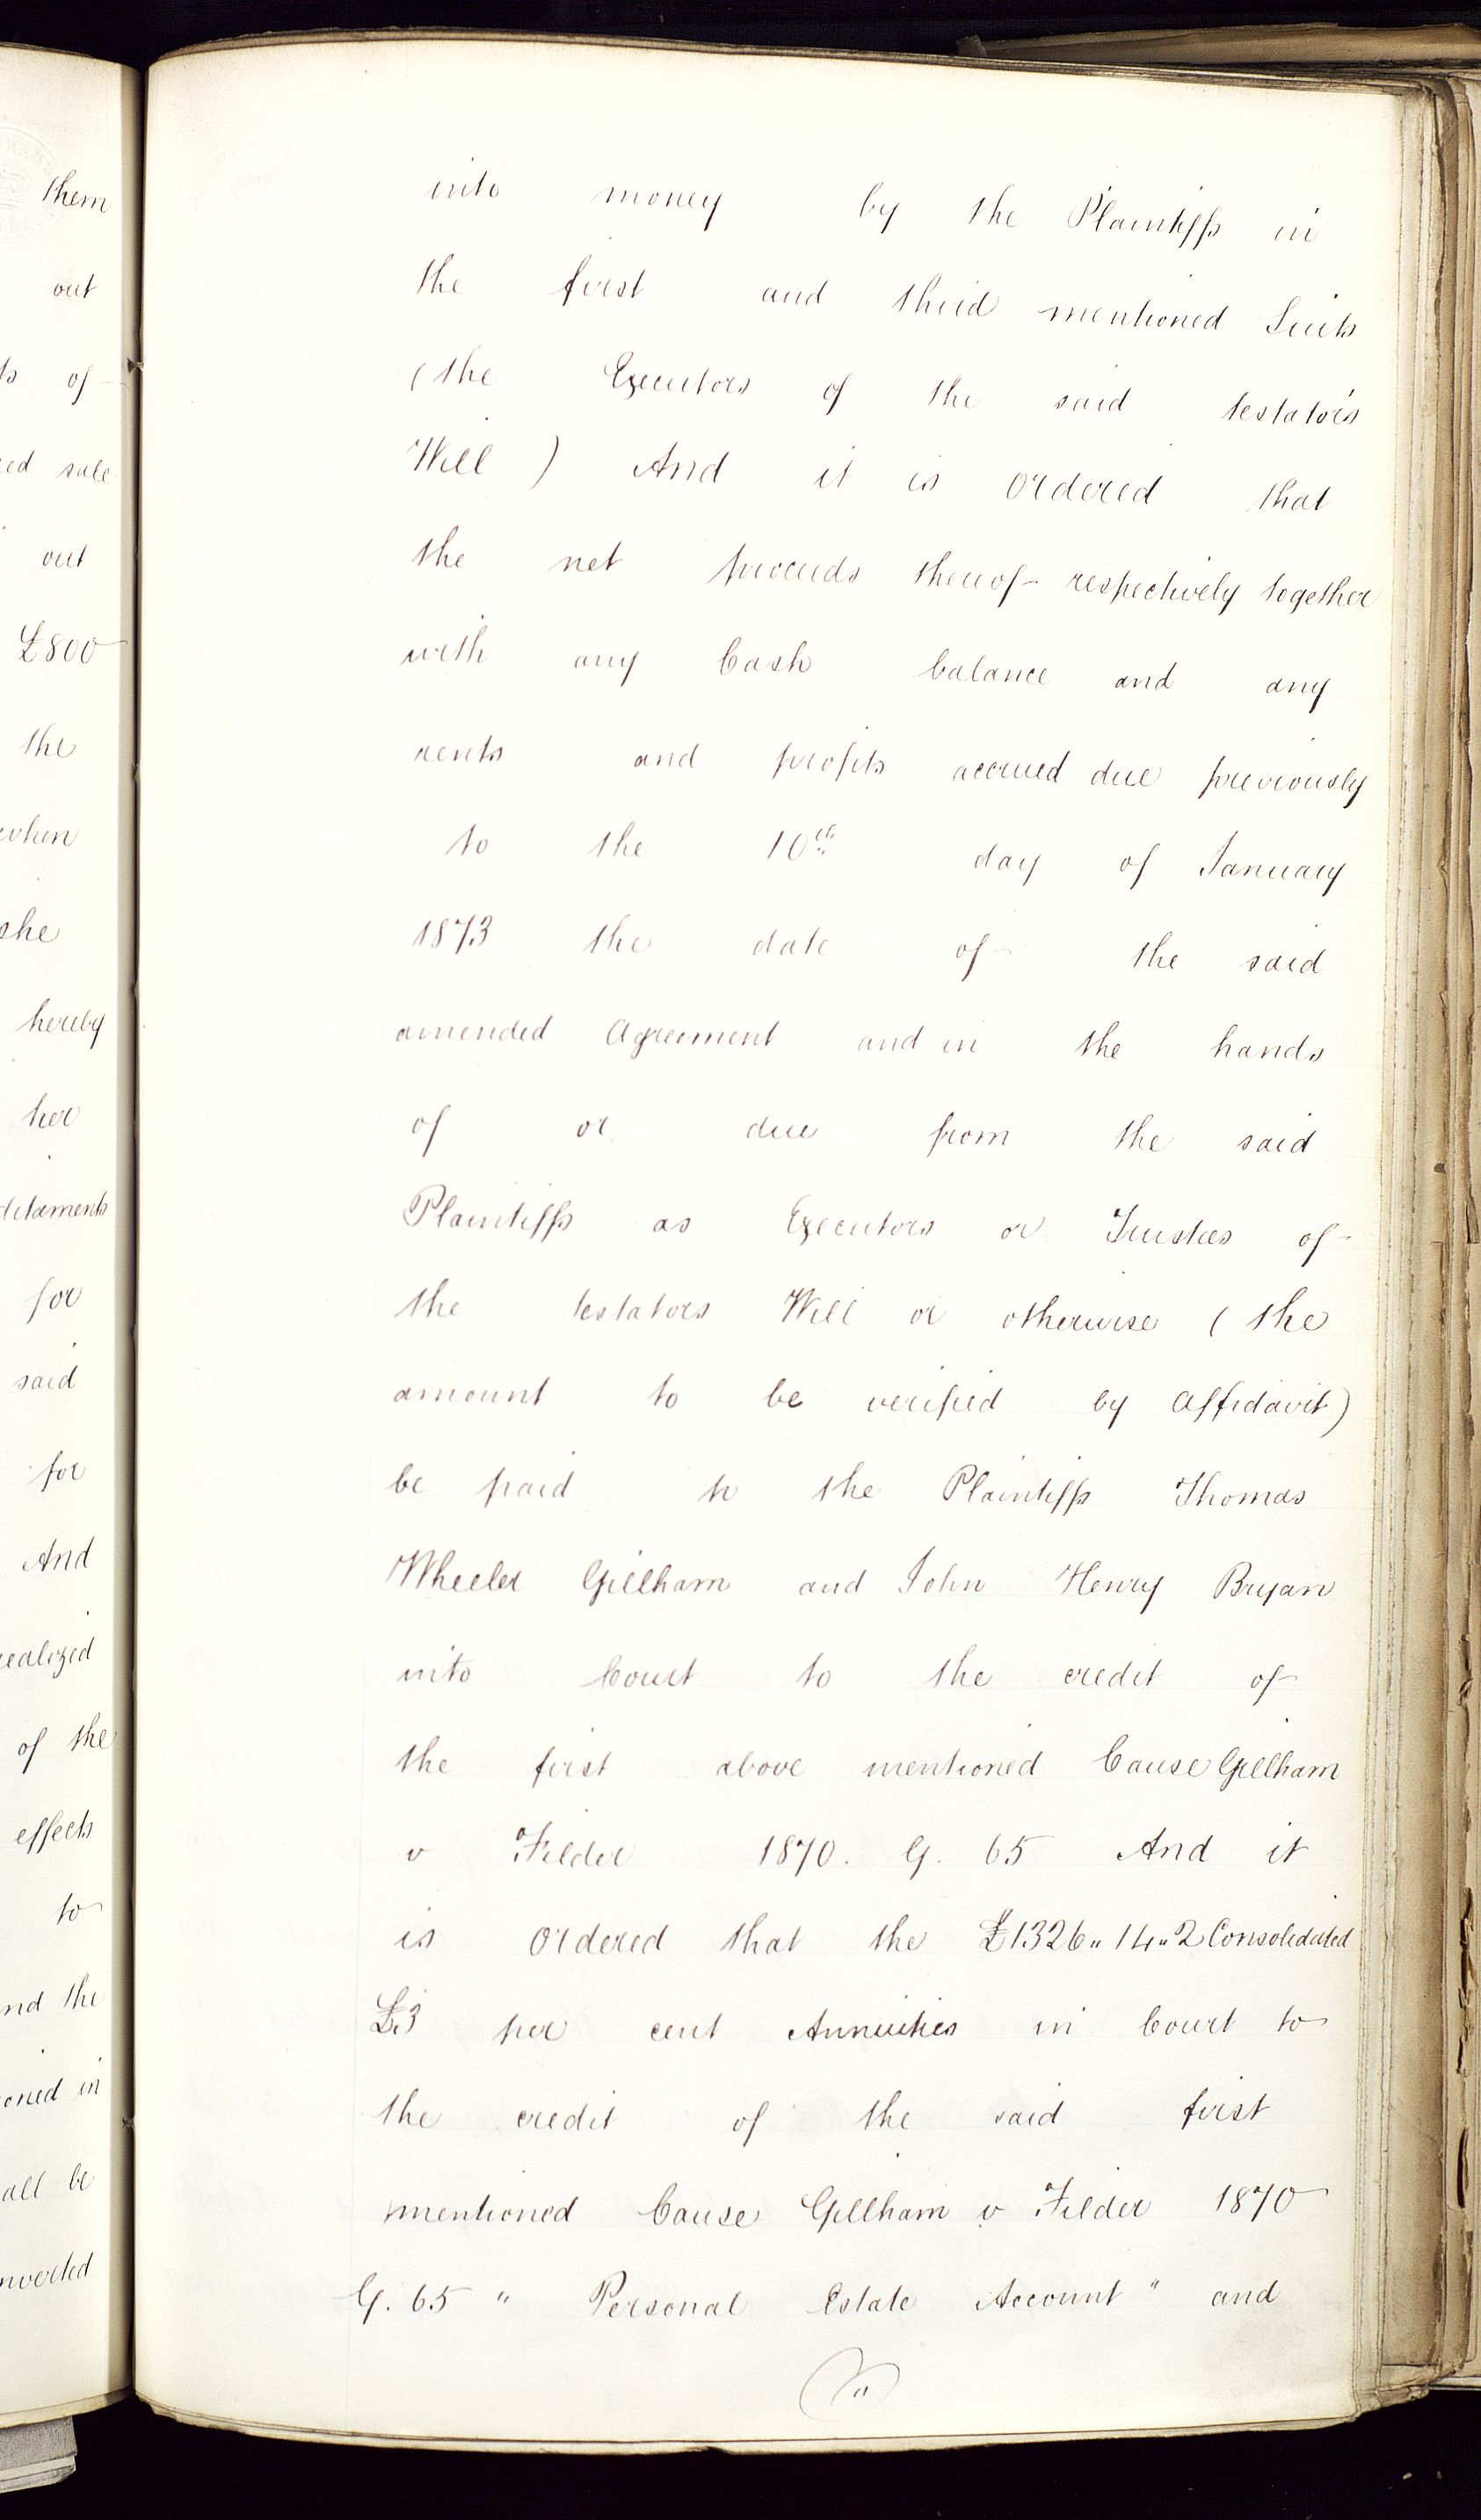 them
out
of
sale
out
£800
the
when
she
hereby
her
for
said
for
And
realized
of the
effects
to
the
in
all be
into money by the Plaintiffs in
the first and third mentioned Suits
(the Executors of the said testator's
Will) And it is Ordered that
the net proceeds thereof respectively together
with any Cash balance and any
rents and profits accrued due previously
to the 10th day of January
1873 the date of the said
amended Agreement and in the hands
of or due from the said
Plaintiffs as Executors or Trustees of
the testators Will or otherwise (the
amount to be verified by Affidavit)
be paid to the Plaintiffs Thomas
Wheeler Gillham and John Henry Bryan
into Court to the credit of
the first above mentioned Cause Gillham
v Filder 1870. G. 65 And it
is Ordered that the £1326 " 14 " 2 Consolidated
£3 per cent Annuities in Court to
the credit of the said first
mentioned Cause Gillham v Filder 1870
G. 65 " Personal Estate Account " and